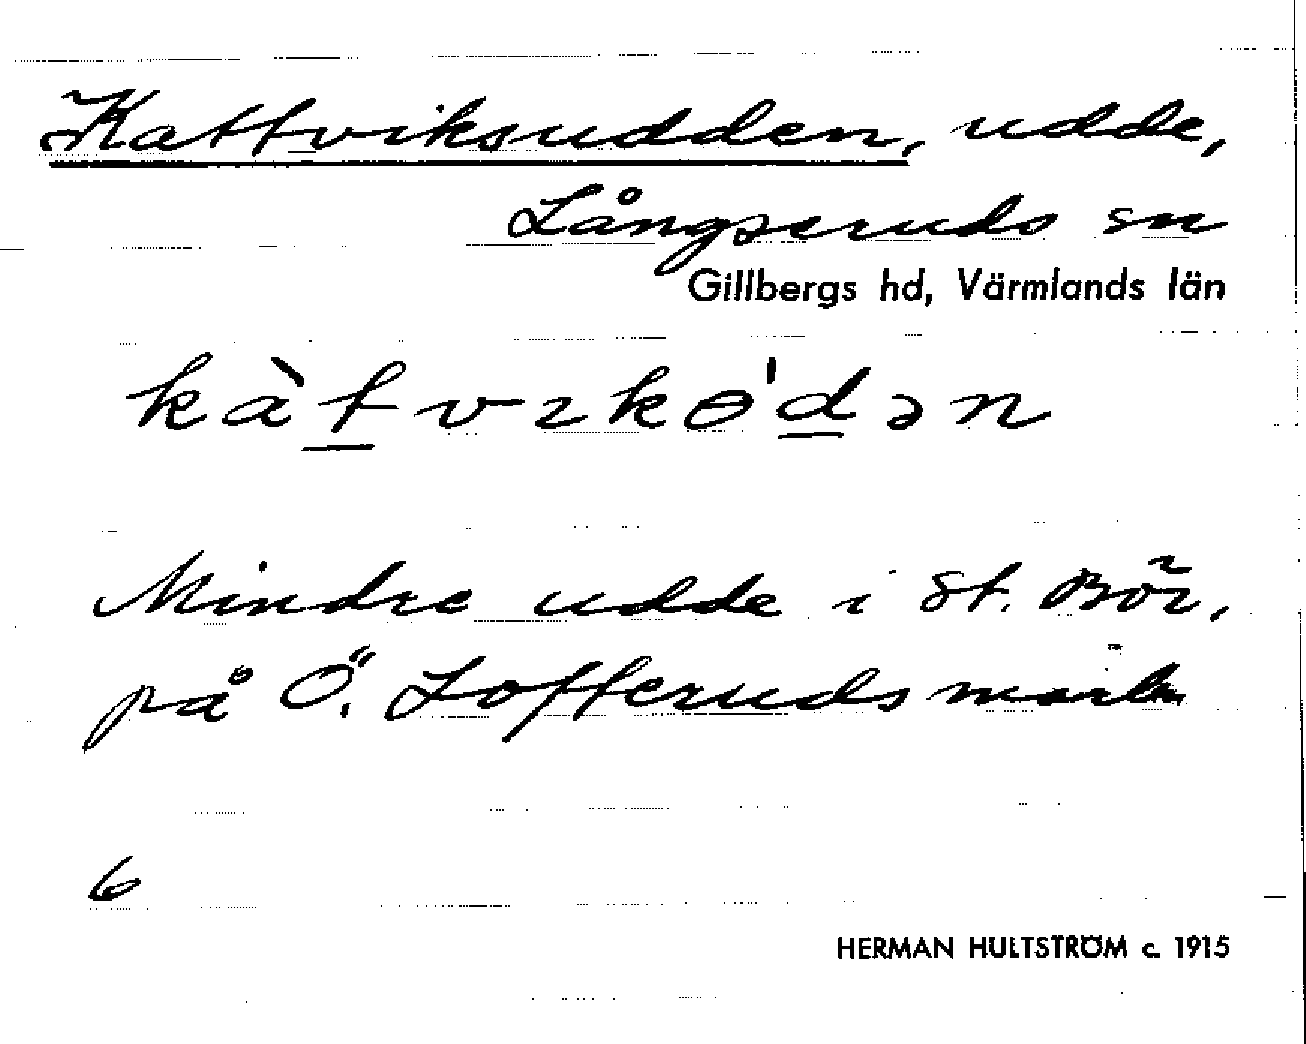 Kattviksudden, udde,
Långseruds sn
Gillbergs hd, Värmlands län
kàt̲vıkɵˈd̲ən
Mindre udde i St. Bör,
på Ö. Lofferudsmark
6
HERMAN HULTSTRÖM c. 1915